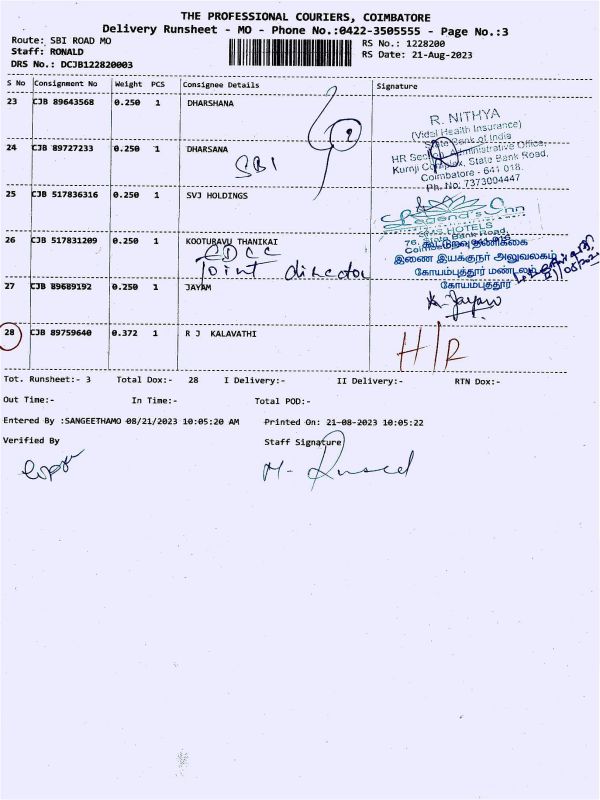 THE PROFESSIONAL COURIERS, COIMBATORE
Delivery Runsheet - MO - Phone No.:0422-3505555 - Page No.:3
Route: SBI ROAD MO
RS No.: 1228200
Staff: RONALD
RS Date: 21-Aug-2023
DRS No.: DCJB122820003
S No Consignment No Weight PCS Consignee Details Signature
23 CJB 89643568 0.250 1 DHARSHANA
R. NITHYA
(Vidal Health Insurance)
State Bank of India
24 CJB 89727233 0.250 1 DHARSANA
SBI
HR Section, Administrative Office,
Kurnji Complex, State Bank Road,
Coimbatore - 641 018.
Ph. No: 7373004447
25 CJB 517836316 0.250 1 SVJ HOLDINGS
Legend's Inn
HOTELS
76, State Bank Road,
26 CJB 517831209 0.250 1 KOOTURAVU THANIKAI
CDCC
Joint director
இணை இயக்குநர் அலுவலகம்
கோயம்புத்தூர் மண்டலம்
கோயம்புத்தூர்
27 CJB 89689192 0.250 1 JAYAM
K. Jayam
28 CJB 89759640 0.372 1 R J KALAVATHI
H/R
Tot. Runsheet:- 3 Total Dox:- 28 I Delivery:- II Delivery:- RTN Dox:-
Out Time:- In Time:- Total POD:-
Entered By :SANGEETHAMO 08/21/2023 10:05:20 AM Printed On: 21-08-2023 10:05:22
Verified By Staff Signature